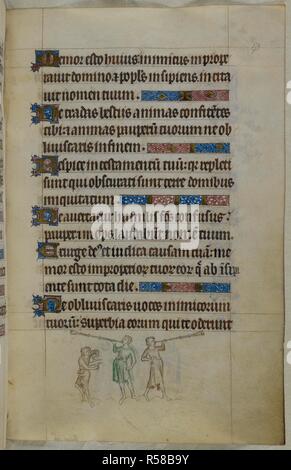 Memor esto huius inimicus in prope
rauit domino: ⁊ pop̃ls insipiens incita
uit nomen tuum.
Ne tradas bestiis animas confitẽtes
tibi: ⁊ animas pauperũ tuorum ne ob
liuiscaris in finem.
Respice in testamentũ tuũ: qr̃ repleti
sunt qui obscurati sunt terre domibus
iniquitatum
Ne auertatur humilis fc̃s confusus:
pauper ⁊ inops laudabunt nomen tuum.
Exurge dẽ ⁊ iudica causam tuã: me
mor esto improperior tuor eor q̃ ab ĩsipi
ente sunt tota die.
Ne obliuiscaris uoces inimicorum
tuorũ: superbia eorum qui te oderunt
R58B9Y